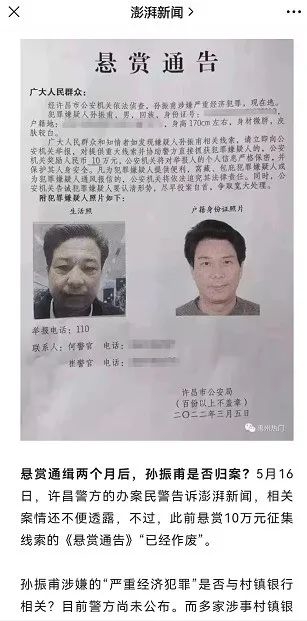 澎湃新闻 >
悬赏通告
广大人民群众：
经许昌市公安机关依法侦查，孙振甫涉嫌严重经济犯罪，现在逃。
犯罪嫌疑人孙振甫，男，回族，身份证号：
户籍地：，身高170cm左右，身材微胖，皮
肤较白。
广大人民群众和知情者如发现嫌疑人孙振甫相关线索，请立即向公
安机关举报，对提供重大线索并协助警方直接抓获犯罪嫌疑人的，公安
机关奖励人民币10万元，公安机关将对举报人的个人信息严格保密，并
保护其人身安全。凡为犯罪嫌疑人提供便利，窝藏、包庇犯罪嫌疑人或
为犯罪嫌疑人通风报信的，公安机关将依法追究其法律责任。同时，公
安机关告诫犯罪嫌疑人要认清形势，尽早投案自首，争取宽大处理。
附犯罪嫌疑人照片如下：
生活照 户籍身份证照片
举报电话：110
联系人：何警官 电话：
崔警官 电话：
许昌市公安局
（百份以上不盖章）
二〇二二年三月五日
禹州热门
悬赏通缉两个月后，孙振甫是否归案？5月16
日，许昌警方的办案民警告诉澎湃新闻，相关
案情还不便透露，不过，此前悬赏10万元征集
线索的《悬赏通告》“已经作废”。
孙振甫涉嫌的“严重经济犯罪”是否与村镇银行
相关？目前警方尚未公布。而多家涉事村镇银